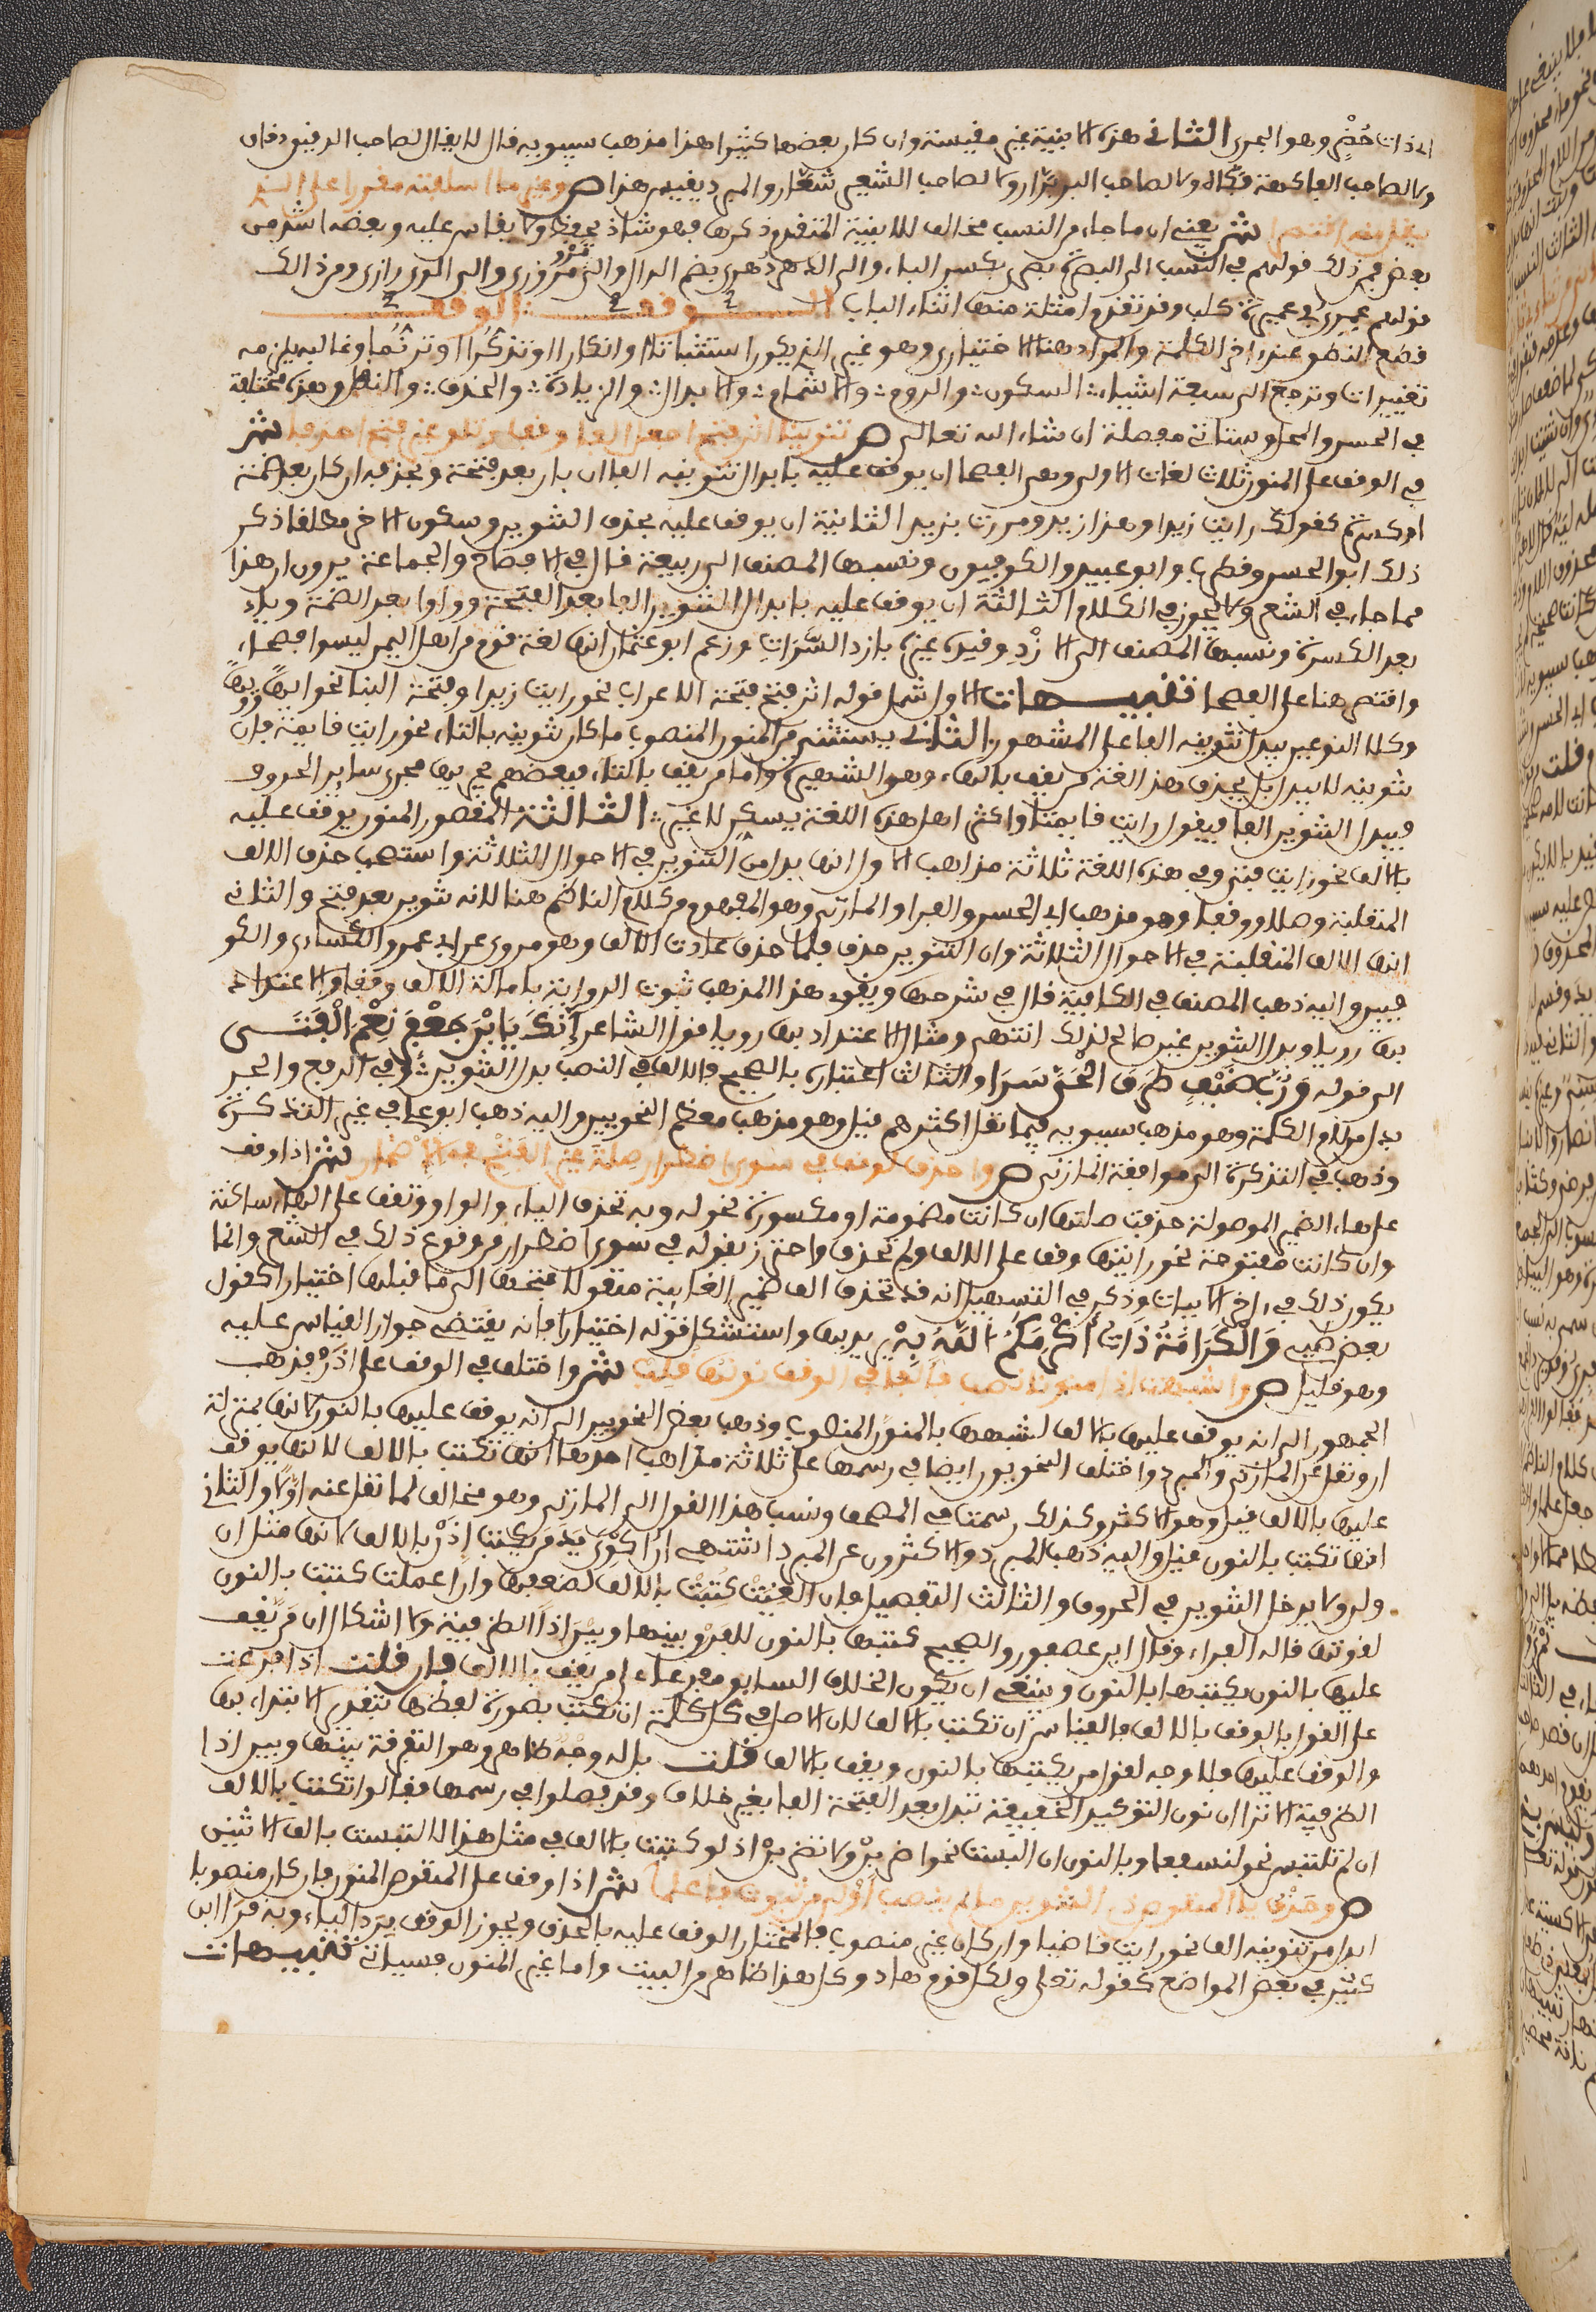 الذات خُضْر وهو البحرى الثانى هذه الابنية غير مقيسة وان كان بعضها كثيرا هذا مذهب سيبويه قال لا يقال لصاحب الدقيق دقاق
ولا لصاحب الفاكهة فكاه ولا لصاحب البر برّار ولا لصاحب الشعير شعّار والمبرد يقيس هذا ص وغير ما اسلفته مقررا على الذى
ينقل منه اقتصرا ش يعنى ان ما جاء من النسب مخالف للابنية المتقدم ذكرها فهو شاذ يحفظ ولا يقاس عليه وبعضه اشذ من
بعض فمن ذلك قولهم فى النسب الى البصرة بصرى بكسر الباء والى الدهر دُهرى بضم الدال والى مرو مروزى والى الرى رازى ومن ذلك
قولهم عميرى فى عميرة كلب وقد تقدم امثلة منها اثناء الباب الوقف الوقف
قطع النطق عند اخر الكلمة والمراد هنا الاختيارى وهو غير الذى يكون استثباتا وانكارا وتذكّرا وترنّما وغالبه يلزمه
تغييرات وترجع الى سبعة اشياء السكون والروم والاشمام والابدال والزيادة والحذف والنقل وهذه مختلفة
فى الحسن والمحل وستاتى مفصلة ان شاء الله تعالى ص تنوينا اثر فتح اجعل الفا وقفا وتلو غير فتح احذفا ش
فى الوقف على المنون ثلاث لغات الاولى وهى الفصحا ان يوقف عليه بابدال تنوينه الفا ان كان بعد فتحة وبحذفه ان كان بعد ضمة
او كسرة كقولك رايت زيدا وهذا زيد ومررت بزيد الثانية ان يوقف عليه بحذف التنوين وسكون الاخر مطلقا ذكر
ذلك ابو الحسن وقطرب وابو عبيد والكوفيون ونسبها المصنف الى ربيعة قال فى الافصاح والجماعة يرون ان هذا
مما جاء فى الشعر ولا يجوز فى الكلام الثالثة ان يوقف عليه بابدال التنوين الفا بعد الفتحة وواوا بعد الضمة وياء
بعد الكسرة ونسبها المصنف الى الازْدِ وقيده غيره بازد السَّرَاتِ وزعم ابو عثمان انها لغة قوم من اهل اليمن ليسوا فصحاء
واقتصر هنا على الفصحا تنبيهات الاول شمل قوله اثر فتح فتحة الاعراب نحو رايت زيدا وفتحة البنا نحو ايهاً وويهاً
وكلا النوعين يبدل تنوينه الفا على المشهور الثانى يستثنى من المنون المنصوب ما كان تنوينه بالتاء نحو رايت قايمة فان
تنوينه لا يبدل بل يحذف هذا لغة من يقف بالهاء وهو الشهير واما من يقف بالتاء فبعضهم يجريها مجرى ساير الحروف
فيبدل التنوين الفا فيقول رايت قايمتا واكثر اهل هذه اللغة يسكن لا غير الثالثة المقصور المنون يوقف عليه
بالالف نحو رايت فتى وفى هذه اللغة ثلاثة مذاهب الاول انها بدل من التنوين فى الاحوال الثلاثة واستصحب حذف الالف
المنقلبة وصلا ووقفا وهو مذهب ابى الحسن والفرا والمازنى وهو المفهوم من كلام الناظم هنا لانه تنوين بعد فتح والثانى
انها الالف المنقلبة فى الاحوال الثلاثة وان التنوين حذف فلما حذف عادت الالف وهو مروى عن ابى عمرو الكسائى والكو
فيين واليه ذهب المصنف فى الكافية قال فى شرحها ويقوى هذا المذهب ثبوت الرواية بامالة الالف وقفا والاعتداد
بها رويا وبدل التنوين غير صالح لذلك انتهى ومثال الاعتداد بها رويا قول الشاعر إِنَّكَ يَا بْنَ جَعْفَرٍ نِعْمَ الْفَتَى
الى قوله وَرُبَّ ضَيْفٍ طَرَقَ الْحَىَّ سَرَا والثالث اعتباره بالصحيح فالالف فى النصب بدل التنوين وفى الرفع والجر
بدل من لام الكلمة وهو مذهب سيبويه فيما نقل اكثرهم قيل وهو مذهب معظم النحويين واليه ذهب ابو على فى غير التذكرة
وذهب فى التذكرة الى موافقة المازنى ص واحذف لوقف فى سوى اضطرار صلة غير الفتح فى الاضمار ش اذا وقف
على هاء الضمير الموصولة حذفت صلتها ان كانت مضمومة او مكسورة نحو له وبه تحذف الياء والواو وتقف على الهاء ساكنة
وان كانت مفتوحة نحو رايتها وقف على الالف ولم تحذف واحترز بقوله فى سوى اضطرار من وقوع ذلك فى الشعر وانما
يكون ذلك فى اخر الابيات وذكر فى التسهيل انه قد تحذف الف ضمير الغايبة منقولا فتحها الى ما قبلها اختيارا كقول
بعض طيى وَالْكَرَامَةُ ذَاتُ أَكْرَمَكُمُ اللَّهُ بِهْ يريد بها واستشكل قوله اختيارا فانه يقتضى جواز القياس عليه
وهو قليل ص واشبهت اذا منونا نصب فالفا فى الوقف نونها قلب ش واختلف فى الوقف على اذَنْ فذهب
الجمهور الى انه يوقف عليها بالالف لشبهها بالمنون المنصوب وذهب بعض النحويين الى انه يوقف عليها بالنون لانها بمنزلة
ان ونقل عن المازنى والمبرد واختلف النحويون ايضا فى رسمها على ثلاثة مذاهب احدها انها تكتب بالالف لانها يوقف
عليها بالالف قيل وهو الاكثر وكذلك رسمت فى المصحف ونسب هذا القول الى المازنى وهو مخالف لما نقل عنه اولا والثانى
انها تكتب بالنون قيل واليه ذهب المبرد والاكثرون عن المبرد اشتهى ان اكوى يد من يكتب اذن بالالف لانها مثل ان
ولن ولا يدخل التنوين فى الحروف والثالث التفصيل فان الغيت كتبت بالالف لضعفها وان اعملت كتبت بالنون
لقوتها قاله الفراء وقال ابن عصفور والصحيح كتبها بالنون للفرق بينها وبين اذا الظرفية ولا اشكال ان من يقف
عليها بالنون يكتبها بالنون وينبغى ان يكون الخلاف السابق مفرعا على من يقف بالالف فان قلت اذا فرعت
على القول بالوقف بالالف فالقياس ان تكتب بالالف لان الاصل فى كل كلمة ان تكتب بصورة لفظها بتقدير الابتداء بها
والوقف عليها فلا وجه لقول من يكتبها بالنون ويقف بالالف قلت بل له وجه ظاهر وهو التفرقة بينها وبين اذا
الظرفية الا ترا ان نون التوكيد الخفيفة تبدل بعد الفتحة الفا بغير خلاف وقد فصلوا فى رسمها فقالوا تكتب بالالف
ان لم تلتبس نحو لنسفعا وبالنون ان التبست نحو اضربن ولا تضربن اذ لو كتبت بالالف فى مثل هذا لالتبست بالف الاثنين
ص وحذف يا المنقوص ذى التنوين ما لم ينصب اولى من ثبوت فاعلما ش اذا وقف على المنقوص المنون فان كان منصوبا
ابدل من تنوينه الف نحو رايت قاضيا وان كان غير منصوب فالمختار الوقف عليه بالحذف ويجوز الوقف برد الياء وبه قرا ابن
كثير فى بعض المواضع كقوله تعلى ولكل قوم هاد وكل هذا ظاهر من البيت واما غير المنون فسياتى تنبيهات